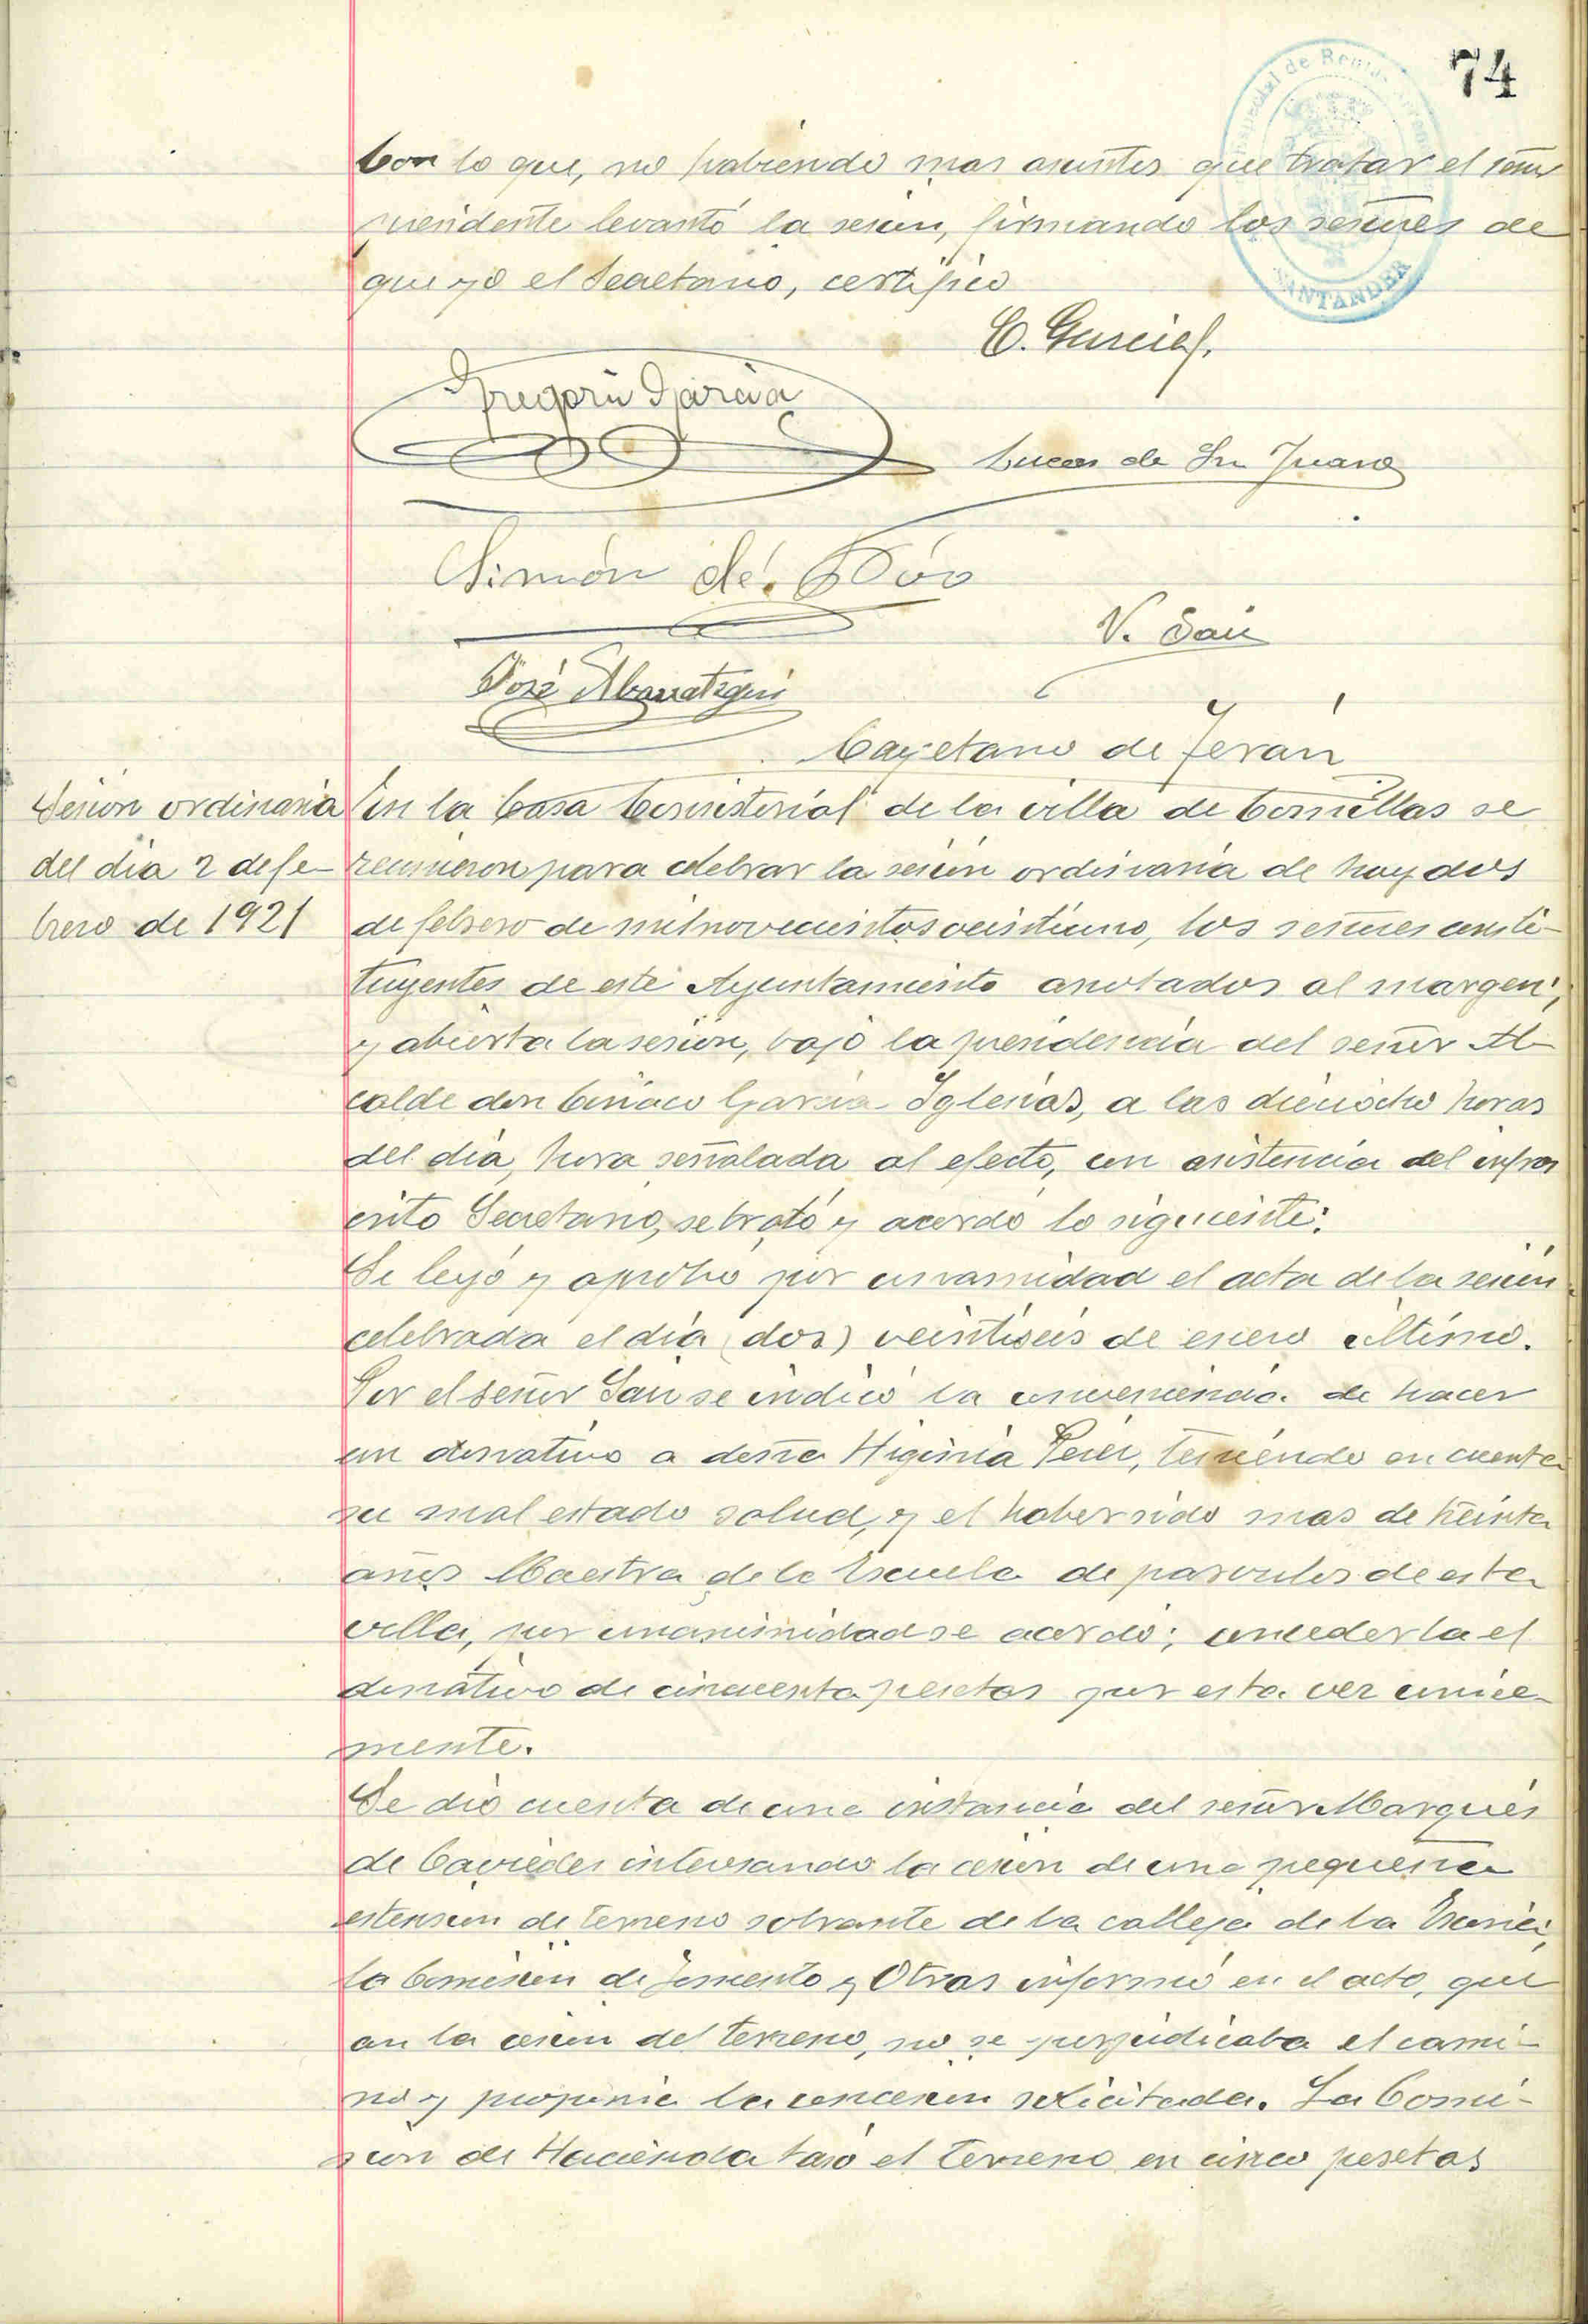 74
Con lo que, no habiendo mas asuntos que tratar el señor
presidente levantó la sesión, firmando los señores de
que yo el Secretario, certifico
C. García
Gregorio García
Lucas de San Juan
Simón del
V. San
José
Cayetano de Terán
Sesion ordinaria
del dia 2 de fe-
brero de 1921
En la Casa Consistorial de la villa de Comillas se
reunieron para celebrar la sesión ordinaria de hoy dos
de febrero de mil novecientos veintiuno, los señores consti-
tuyentes de este Ayuntamiento anotados al margen,
y abierta la sesión, bajo la presidencia del señor Al-
calde don Ciriaco García Iglesias, a las dieciocho horas
del dia, hora señalada al efecto, con asistencia del infras
crito Secretario, se trató y acordó lo siguiente:
Se leyó y aprobó por unanimidad el acta de la sesión
celebrada el dia (dos) veintiseis de enero último.
Por el señor San se indicó la conveniencia de hacer
un donativo a doña Higinia Perez, teniendo en cuenta
su mal estado salud, y el haber sido mas de treinta
años Maestra de la Escuela de parvulos de esta
villa, por unanimidad se acordó: concederla el
donativo de cincuenta pesetas por esta vez unica-
mente.
Se dió cuenta de una instancia del señor Marqués
de Caviedes interesando la cesión de una pequeña
estensión de terreno sobrante de la calleja de la
la Comisión de Fomento y Obras informó en el acto, que
con la cesión del terreno, no se perjudicaba el cami-
no y proponia la concesión solicitada. La Comi-
sion de Hacienda tasó el terreno en cinco pesetas
SANTANDER